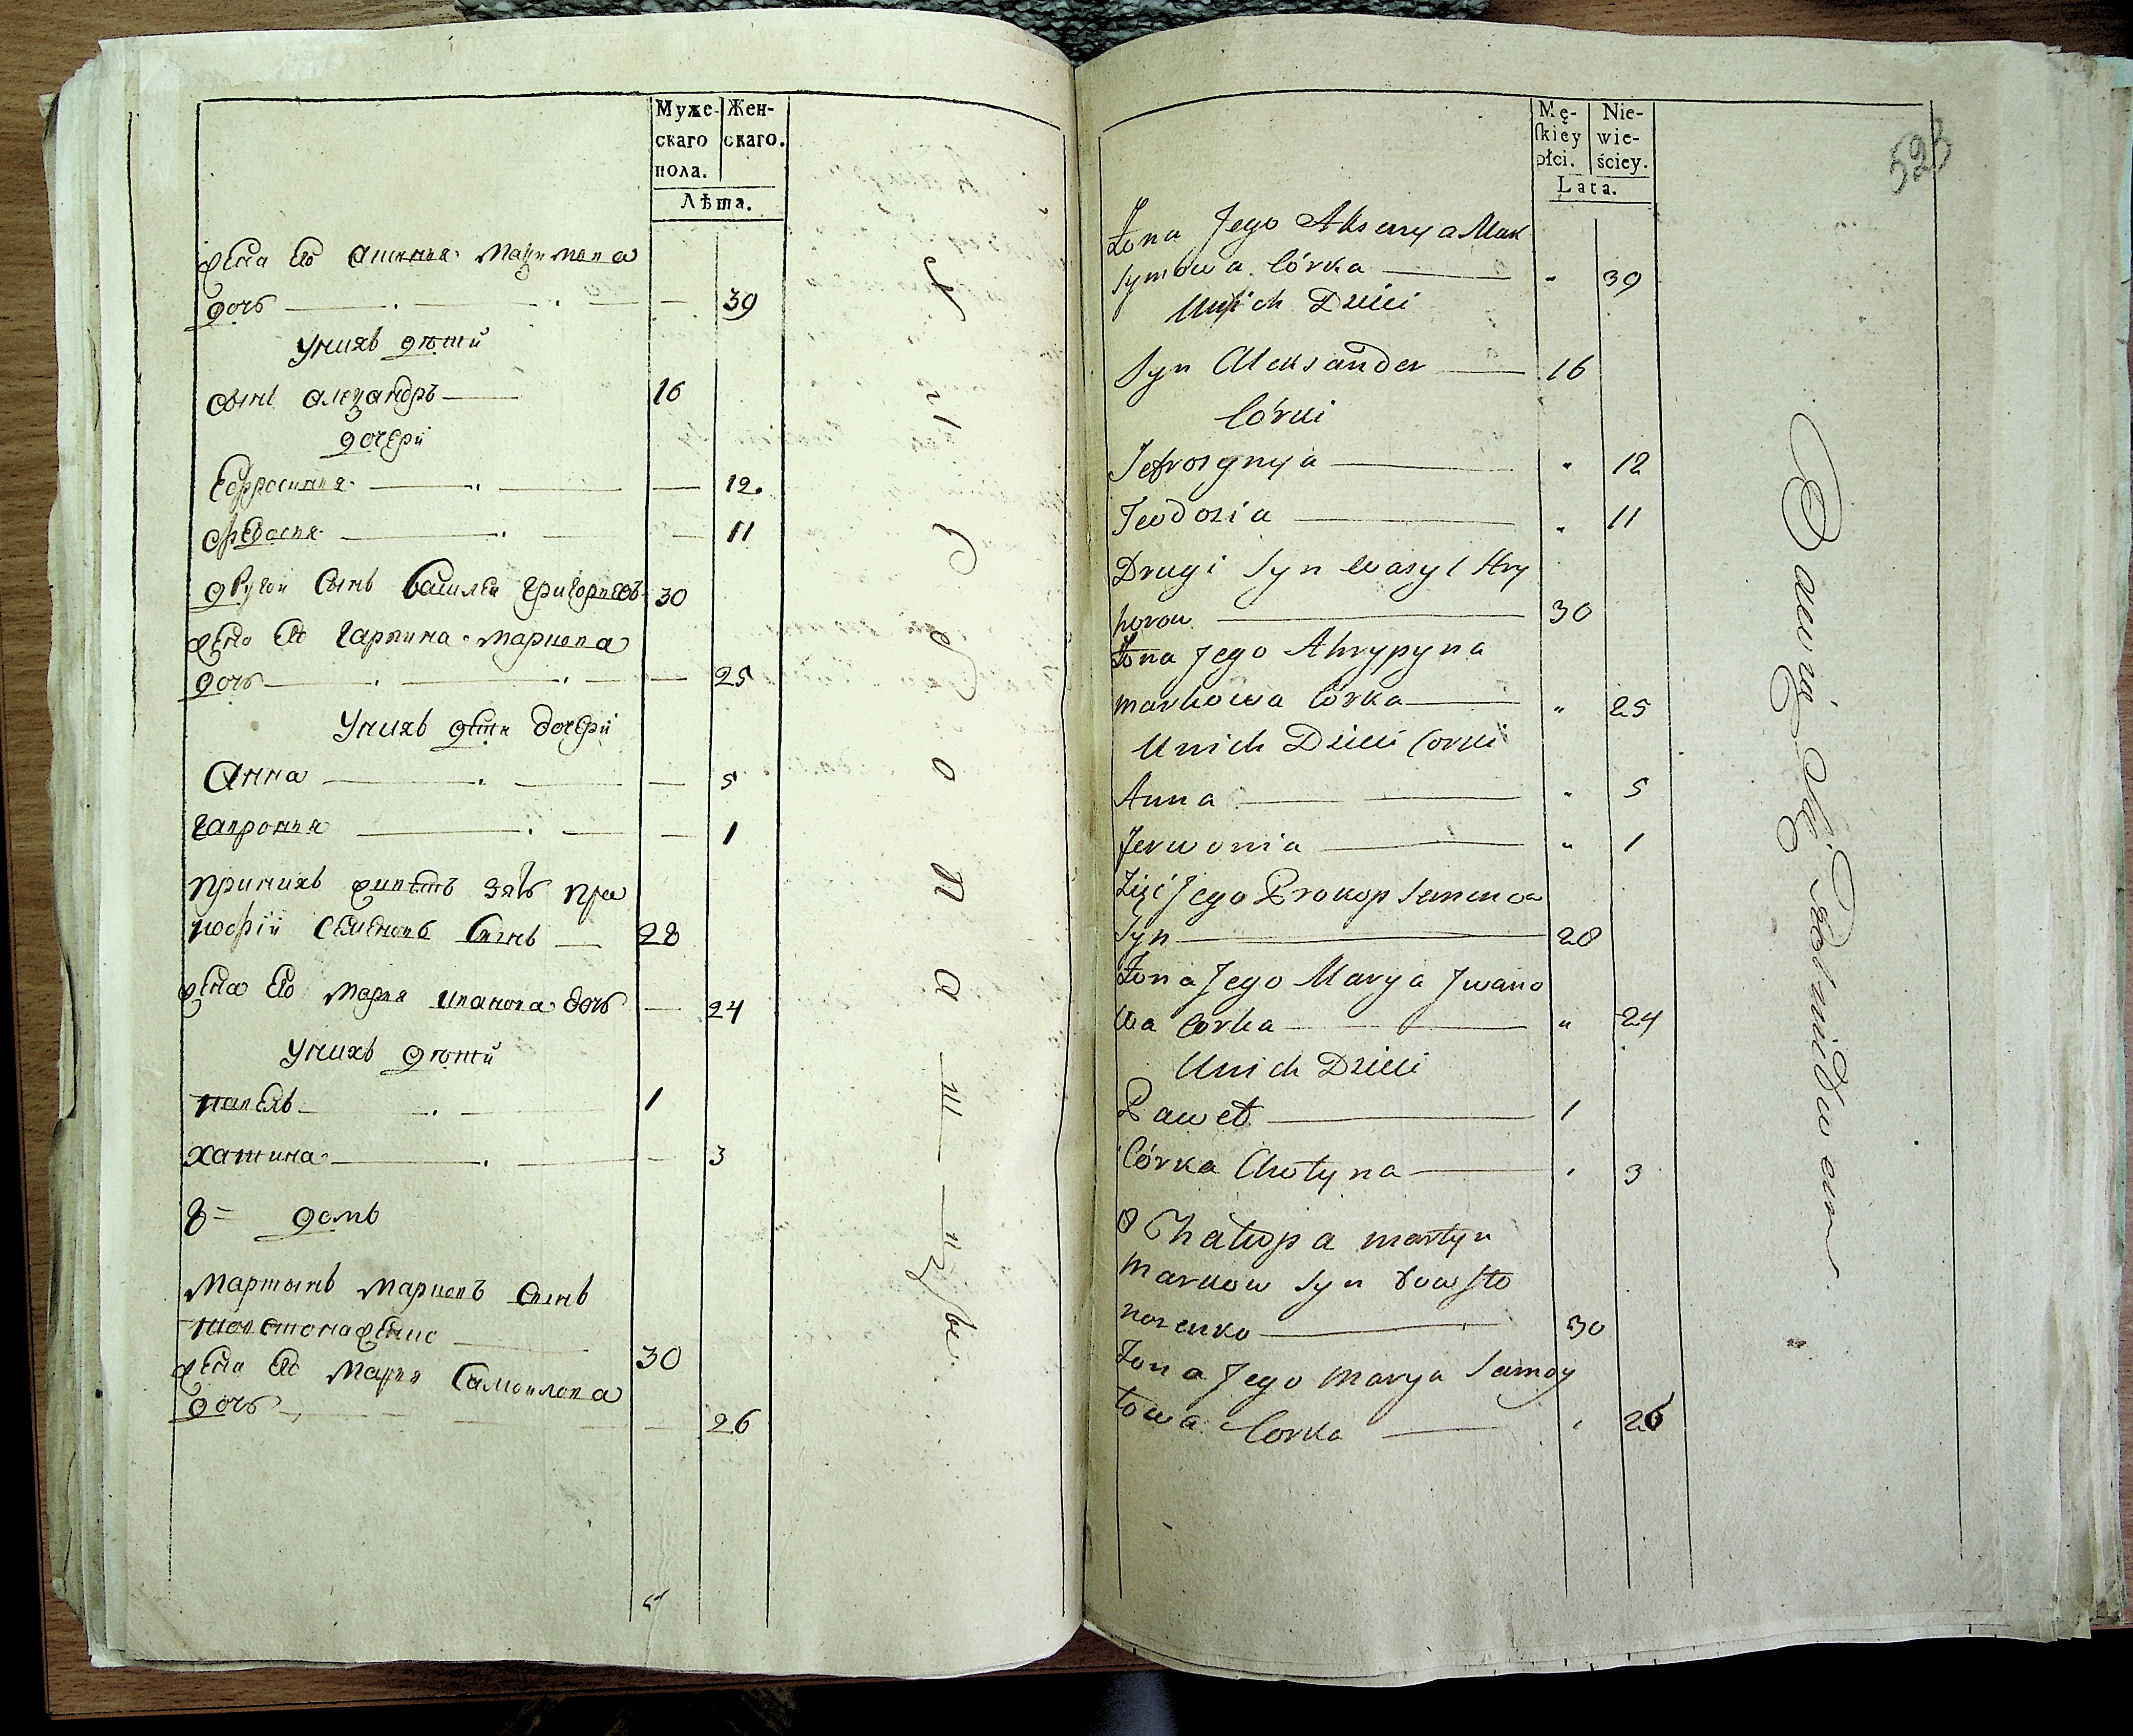 Муже- Жен-
скаго скаго.
пола.
Лѣта.
жена его Аксинья Максимова
дочь 39
У нихъ дѣти
сынъ Александръ 16
дочери
Ефросинья 12
Федосья 11
другой сынъ Василей Григорьевъ 30
жена его Гарпина Маркова
дочь 25
У нихъ дети дочери
Анна 5
1
При нихъ живетъ зять Про
кофiй Семеновъ сынъ 28
жена его Марья Иванова дочь 24
У нихъ дѣти
Павелъ 1
Хатина 3
8 = домъ
Мартынъ Марковъ сынъ
Товстоноженко 30
жена его Марья Самойлова
дочь 26
523
Mę- Nie-
skiey wie-
płci. ściey.
Lata.
Żona Jego Aksenya Mak
symowa Córka 39
Unich Dzieci
Syn Aleksander 16
Córki
Jefrosynya 12
Teodosia 11
Drugi Syn Wasyl Hry
horow 30
Żona Jego Ahrypyna
Markowa Córka 25
Unich Dzieci Corki
Anna 5
Jerwonia 1
Zięć Jego Prokop Semenow
Syn 28
Żona Jego Marya Jwano
wa Corka 24
Unich Dzieci
Paweł 1
Córka Chotyna 3
8 Chałupa Martyn
Markow Syn Towsto
nozenko 30
Żona Jego Marya Samoy
łowa Corka 26